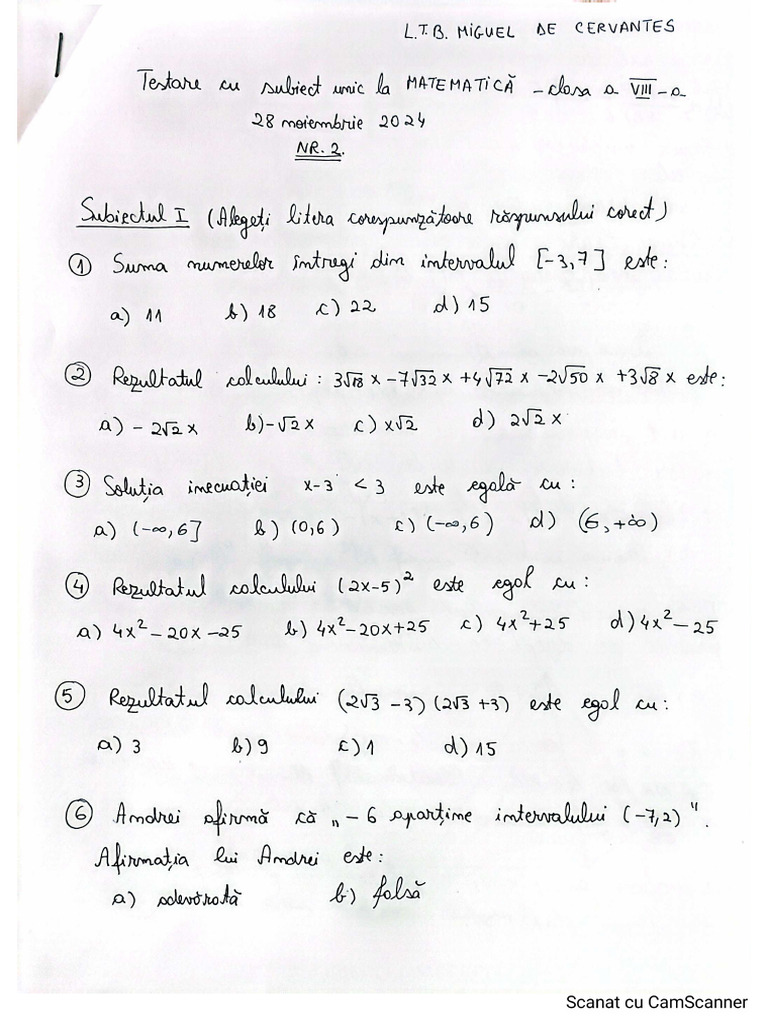 L.T.B. MIGUEL DE CERVANTES
Testare cu subiect unic la MATEMATICĂ – clasa a VIII-a
28 noiembrie 2024
NR. 2.
Subiectul I (Alegeți litera corespunzătoare răspunsului corect)
① Suma numerelor întregi din intervalul [-3,7] este:
a) 11 b) 18 c) 22 d) 15
② Rezultatul calculului: 3√18 x -7√32 x +4√72 x -2√50 x +3√8 x este:
a) -2√2 x b) -√2 x c) x√2 d) 2√2 x
③ Soluția inecuației x-3 < 3 este egală cu:
a) (-∞,6] b) (0,6) c) (-∞,6) d) (6,+∞)
④ Rezultatul calculului (2x-5)² este egal cu:
a) 4x²-20x-25 b) 4x²-20x+25 c) 4x²+25 d) 4x²-25
⑤ Rezultatul calculului (2√3 -3)(2√3 +3) este egal cu:
a) 3 b) 9 c) 1 d) 15
⑥ Andrei afirmă că „-6 aparține intervalului (-7,2)".
Afirmația lui Andrei este:
a) adevărată b) falsă
Scanat cu CamScanner